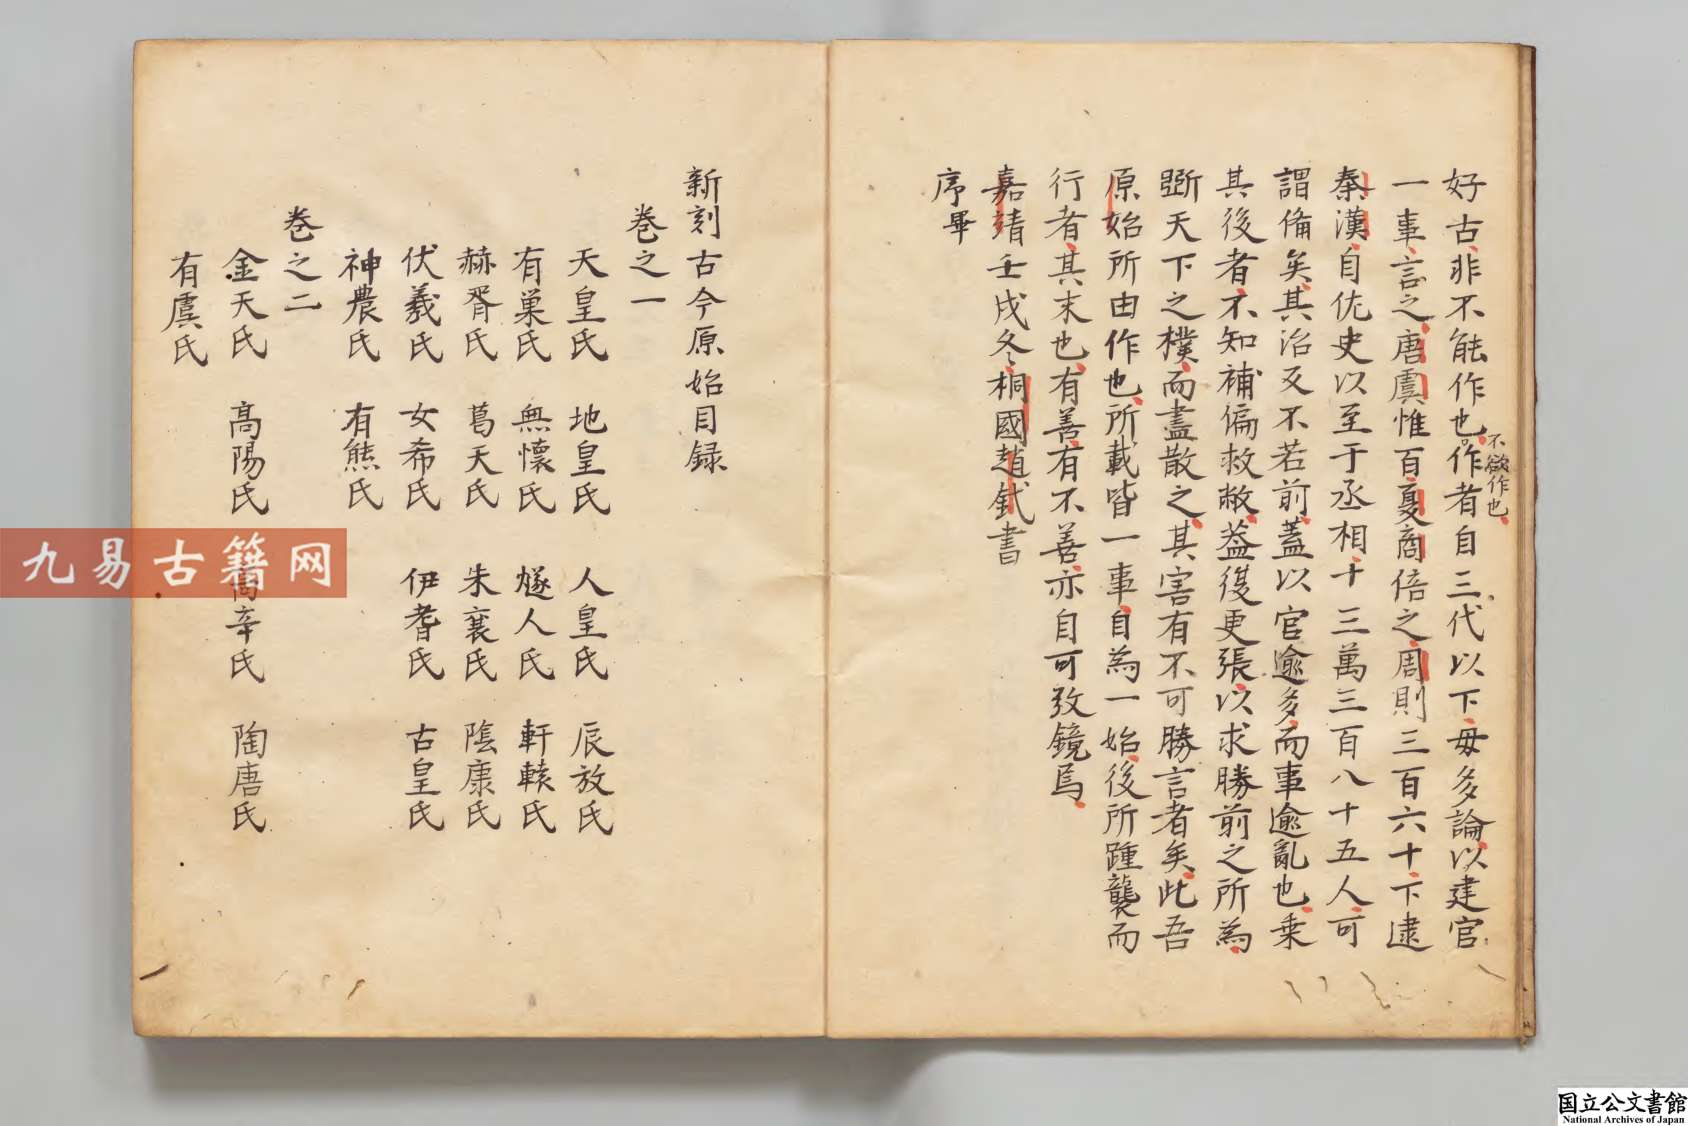 好古非不能作也作者自三代以下毋多論以建官
不欲作也
一事言之唐虞惟百夏商倍之周則三百六十下逮
秦漢自佐史以至于丞相十三萬三百八十五人可
謂備矣其治又不若前蓋以官逾多而事逾亂也乗
其後者不知補偏救敝益復更張以求勝前之所為
斲天下之樸而盡散之其害有不可勝言者矣此吾
原始所由作也所載皆一事自為一始後所踵襲而
行者其末也有善有不善亦自可攷鏡焉
嘉靖壬戌冬桐國趙釴書
序畢
新刻古今原始目録
卷之一
天皇氏 地皇氏 人皇氏 辰放氏
有巢氏 無懷氏 燧人氏 軒轅氏
赫胥氏 葛天氏 朱襄氏 陰康氏
伏羲氏 女希氏 伊耆氏 古皇氏
神農氏 有熊氏
卷之二
金天氏 高陽氏 高辛氏 陶唐氏
有虞氏
九易古籍网
国立公文書館
National Archives of Japan